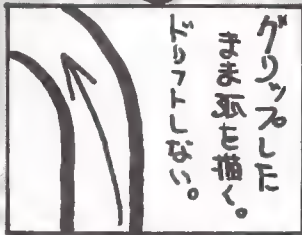 グリップした
まま弧を描く。
ドリフトしない。